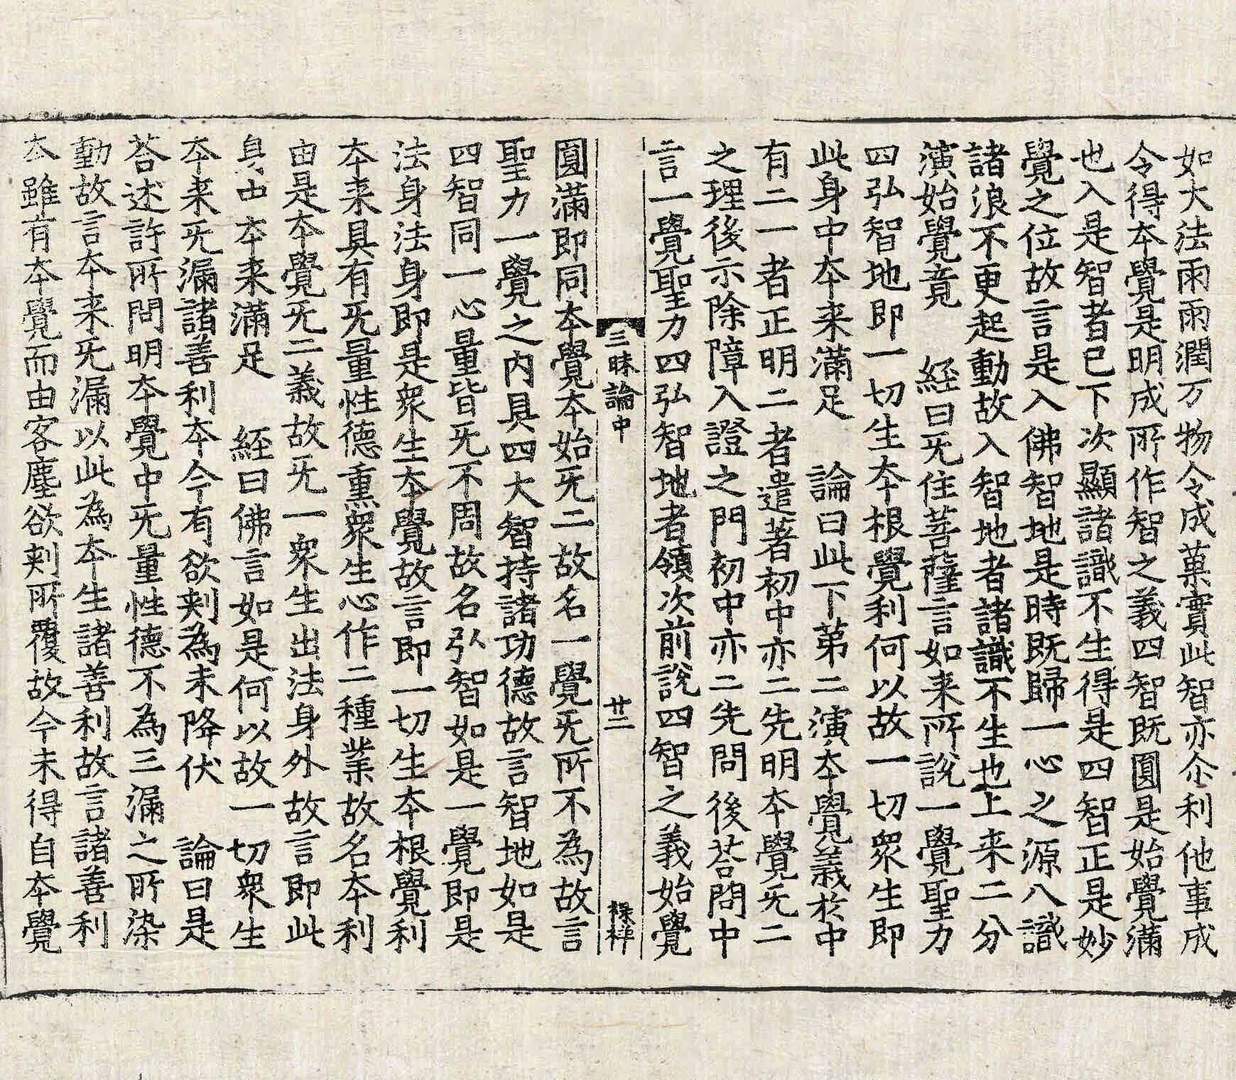 如大法雨雨潤万物令成菓實此智亦尒利他事成
令得夲覺是明成所作智之義四智既圓是始覺滿
也入是智者已下次顯諸識不生得是四智正是妙
覺之位故言是入佛智地是時既歸一心之源八識
諸浪不更起動故入智地者諸識不生也上来二分
演始覺竟 經曰旡住菩薩言如来所說一覺聖力
四弘智地即一切生夲根覺利何以故一切衆生即
此身中夲来滿足 論曰此下第二演夲覺義於中
有二一者正明二者遣著初中亦二先明夲覺旡二
之理後示除障入證之門初中亦二先問後荅問中
言一覺聖力四弘智地者領次前說四智之義始覺
三昧論中 廿二 祿梓
圓滿即同夲覺夲始旡二故名一覺旡所不為故言
聖力一覺之内具四大智持諸功德故言智地如是
四智同一心量皆旡不周故名弘智如是一覺即是
法身法身即是衆生夲覺故言即一切生夲根覺利
夲来具有旡量性德熏衆生心作二種業故名夲利
由是夲覺旡二義故旡一衆生出法身外故言即此
身中夲来滿足 經曰佛言如是何以故一切衆生
夲来旡漏諸善利夲今有欲刾為未降伏 論曰是
荅述許所問明夲覺中旡量性德不為三漏之所染
動故言夲来旡漏以此為夲生諸善利故言諸善利
夲雖有夲覺而由客塵欲刾所覆故今未得自夲覺